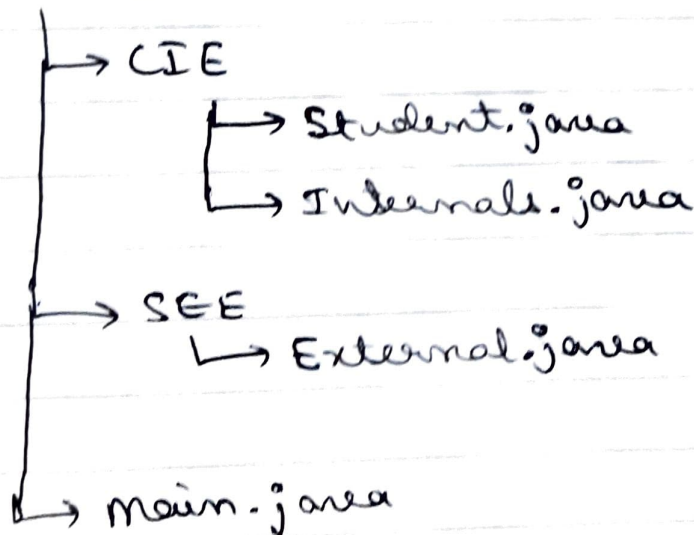 CIE
Student.java
Internals.java
SEE
External.java
Main.java